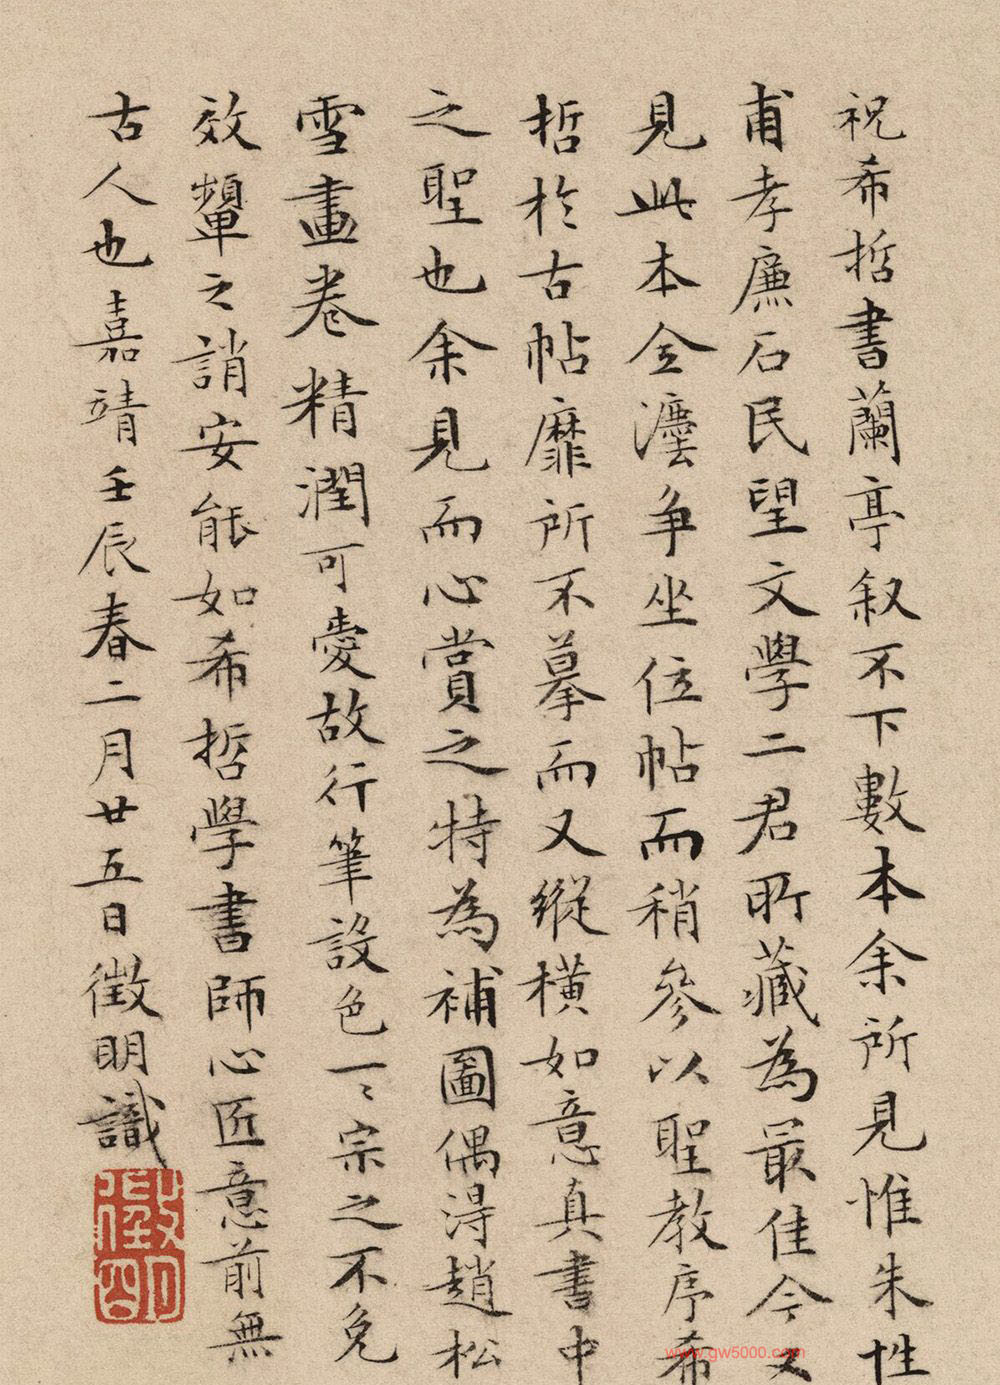 祝希哲書蘭亭叙不下數本余所見惟朱性
甫孝廉石民望文學二君所藏為最佳今又
見此本全灋争坐位帖而稍參以聖教序希
哲於古帖靡所不摹而又縱橫如意真書中
之聖也余見而心賞之特為補圖偶得趙松
雪畫卷精潤可愛故行筆設色一〻宗之不免
效顰之誚安能如希哲學書師心匠意前無
古人也嘉靖壬辰春二月廿五日徵明識
徵明
www.gw5000.com